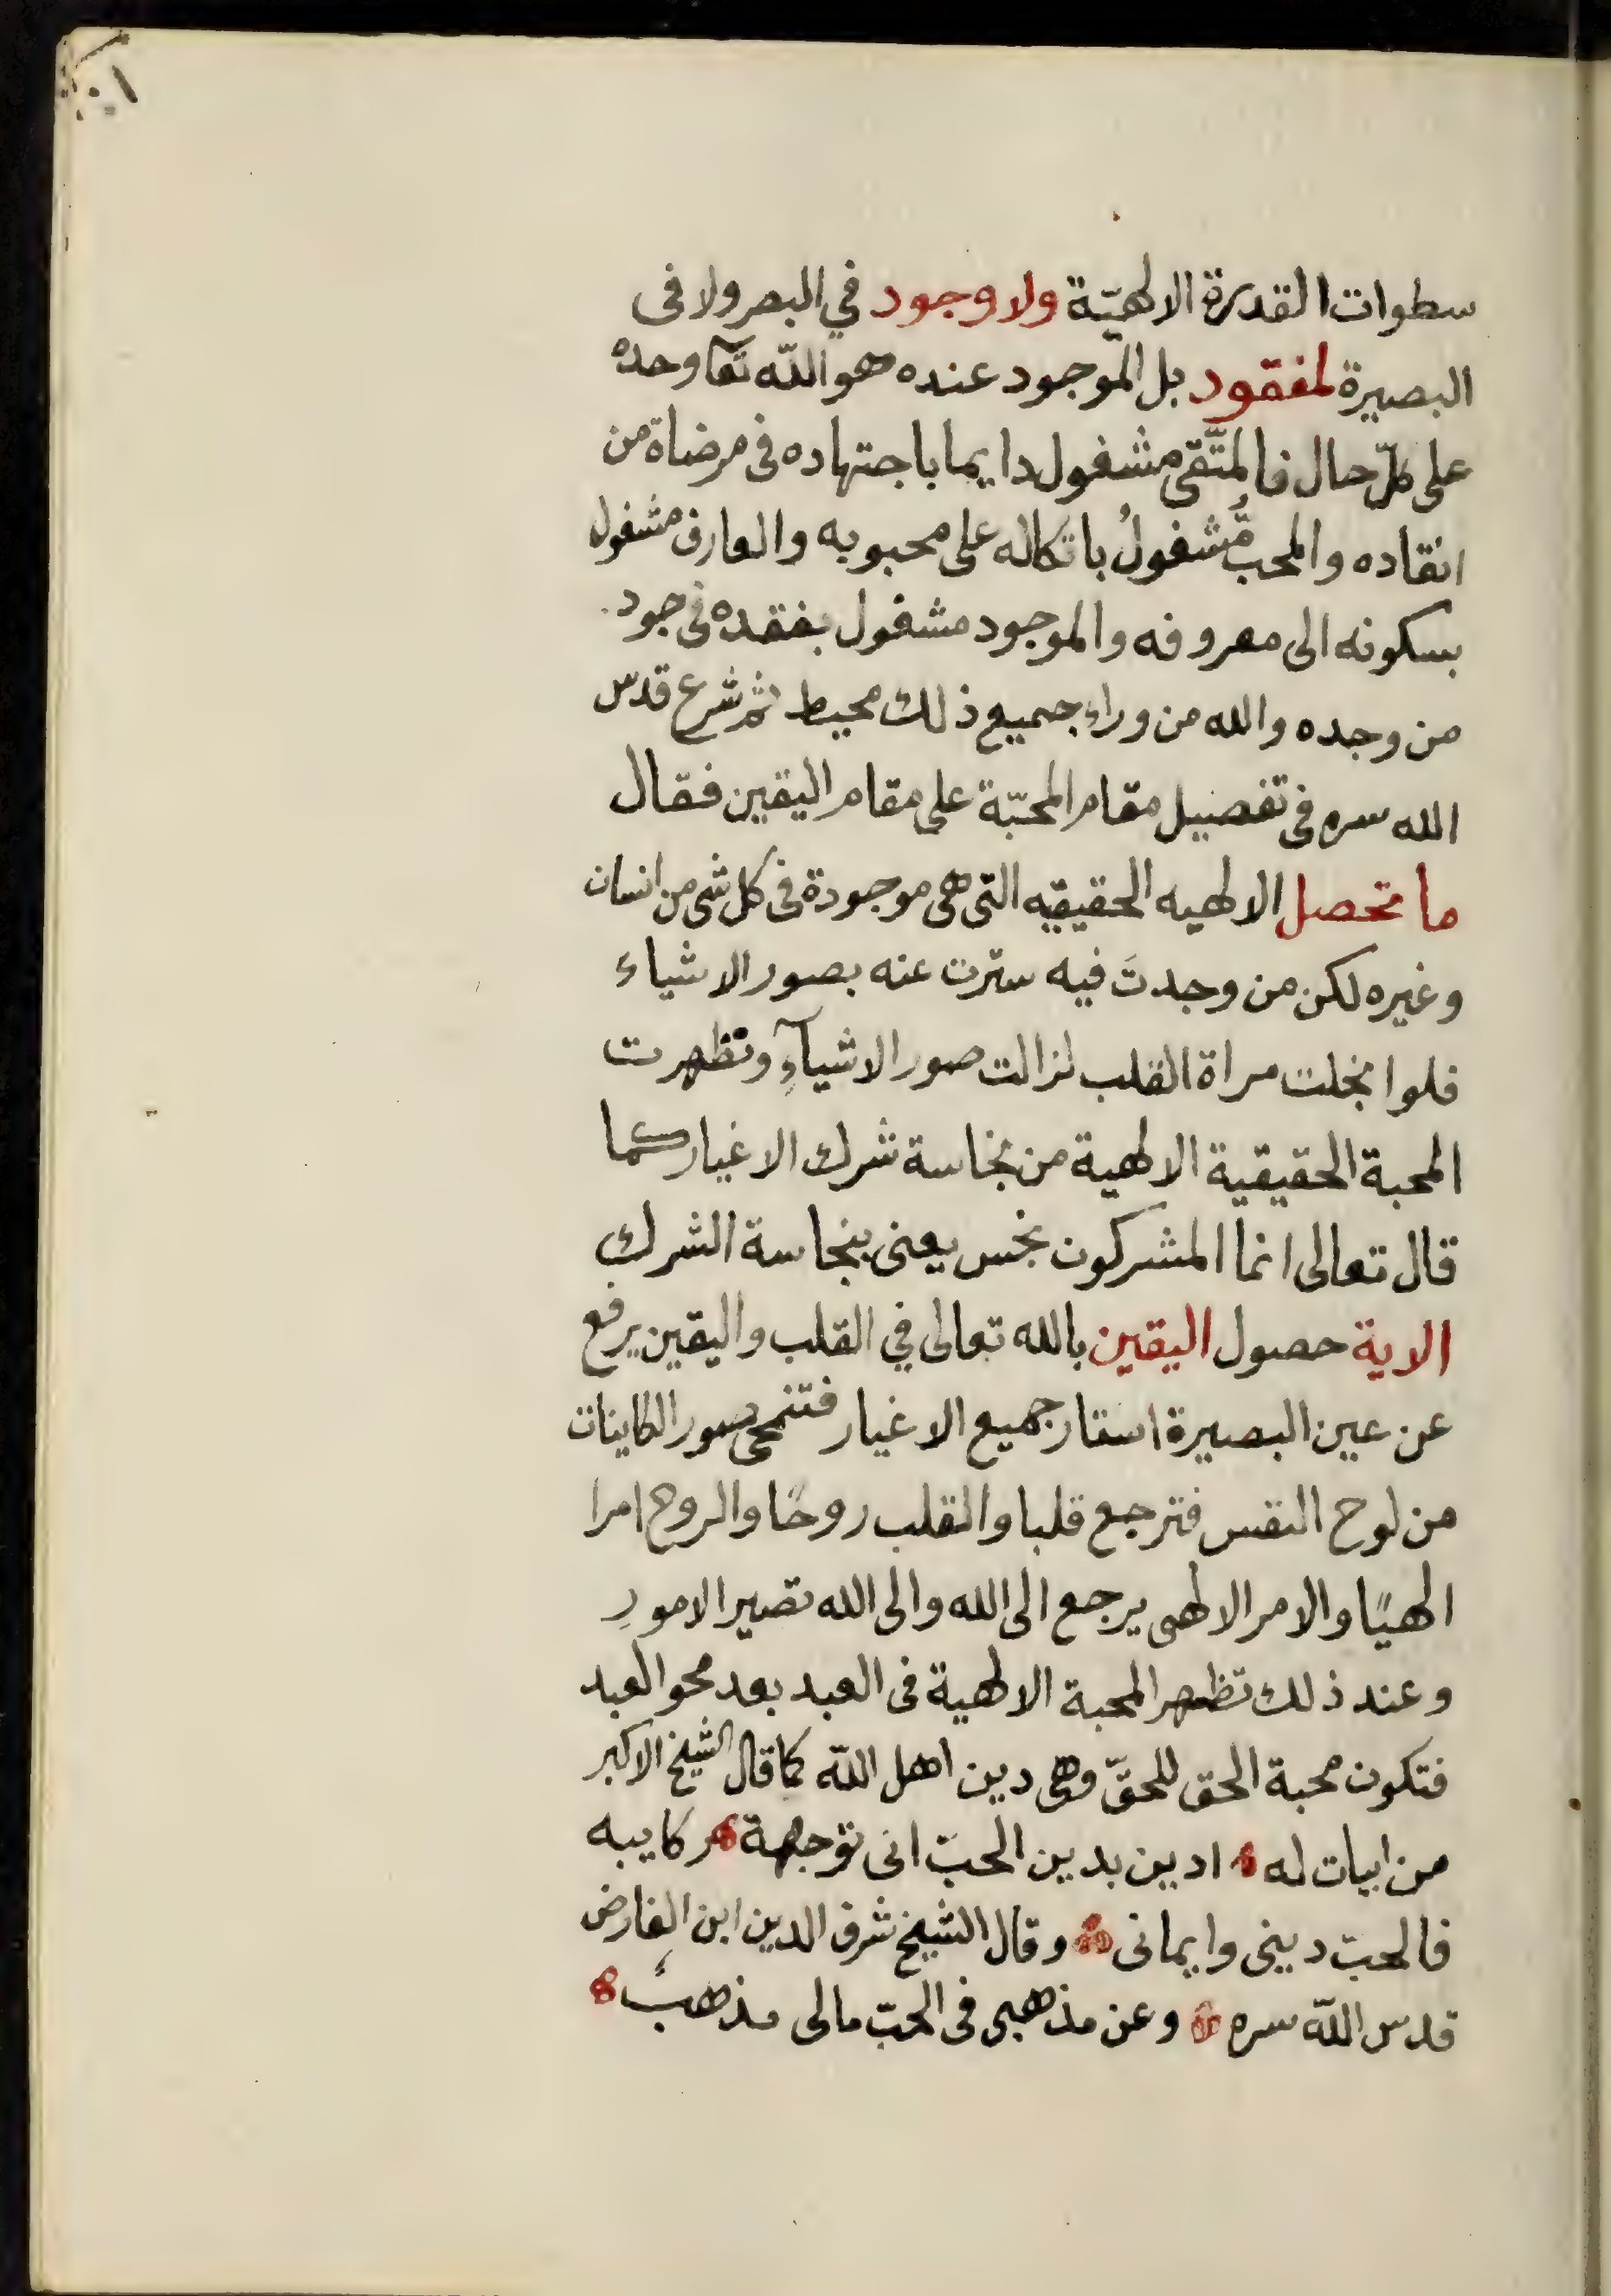 سطوات القدرة الالهيّة ولا وجود في البصر ولا فى
البصيرة لمفقود بل الموجود عنده هو اللّه تعا وحده
على كلّ حال فالمتّقى مشغول دايما باجتهاده فى مرضاة من
انقاده والمحبُّ مشغولُ باتكاله على محبوبه والعارف مشغول
بسكونه الى معروفه والموجود مشغول بفقده فى جود
من وجده والله من وراء جميع ذلك محيط ثم شرع قدس
الله سره فى تفصيل مقام المحبّة على مقام اليقين فقال
ما تحصل الالهيه الحقيقيه التى هى موجودة فى كل شى من انسان
وغيره لكن من وجدتَ فيه سترت عنه بصور الاشياء
فلوا نجلت مراة القلب لزالت صور الاشيآءِ وتظهرت
المحبة الحقيقية الالهية من نجاسة شرك الاغيار كما
قال تعالى انما المشركون نجس يعنى بنجاسة الشرك
الاية حصول اليقين بالله تعالى في القلب واليقين يرفع
عن عين البصيرة استار جميع الاغيار فتنمحى صور الكاينات
من لوح النفس فترجع قلبا والقلب روحًا والروح امرا
الهيًا والامر الالهى يرجع الى الله والى الله تصير الامور
وعند ذلك تظهر المحبة الالهية فى العبد بعد محو العبد
فتكون محبة الحق للحقّ وهى دين اهل اللّه كما قال الشيخ الاكبر
من ابيات له ادين بدين الحبّ انى توجهة ركايبه
فالحبّ دينى وايمانى وقال الشيخ شرف الدين ابن الفارض
قدس اللّه سره وعن مذهبى فى الحبّ مالى مذهبٌ